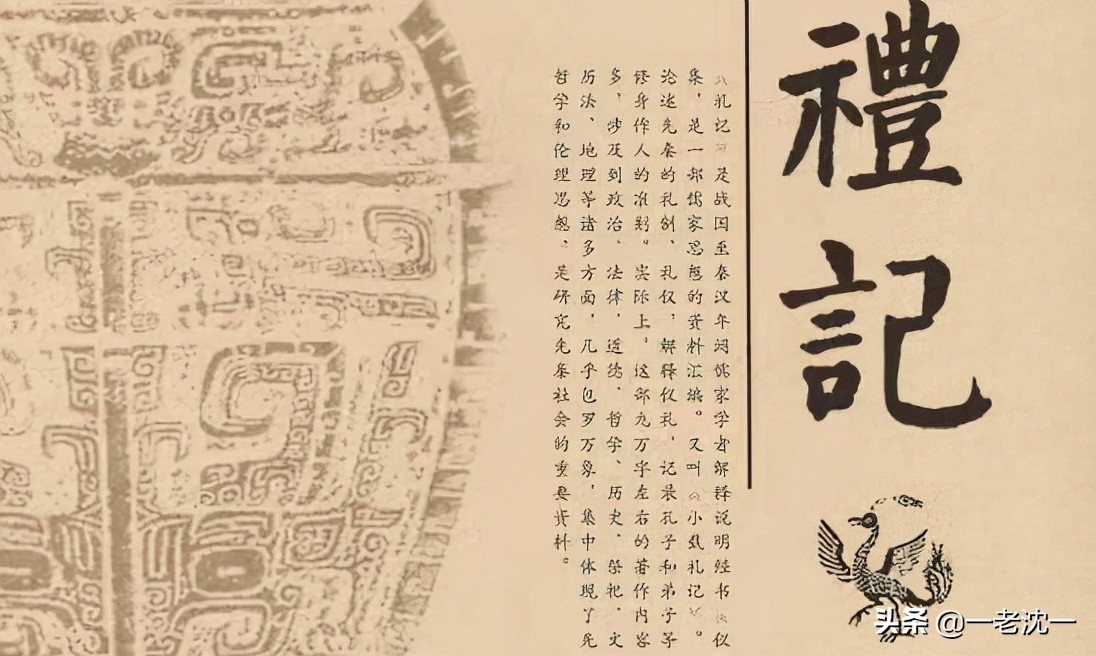 禮記
《礼记》是战国至秦汉年间儒家学者解释说明经书《仪
集，是一部儒家思想的资料汇编。又叫《小戴礼记》。
论述先秦的礼制、礼仪，解释仪礼，记录孔子和弟子等
修身作人的准则。实际上，这部九万字左右的著作内容
多，涉及到政治、法律、道德、哲学、历史、祭祀、文
历法、地理等诸多方面，几乎包罗万象，集中体现了先
哲学和伦理思想，是研究先秦社会的重要资料。
头条 @一老沈一